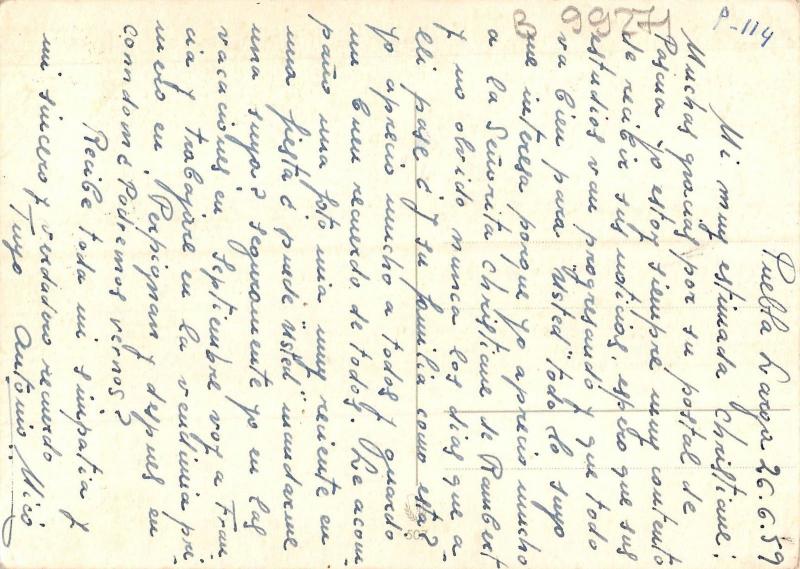 P-114
39927
Puebla Larga 26.6.59
Mi muy estimada Christiane:
Muchas gracias por su postal de
Pascua yo estoy siempre muy contento
de recibir sus noticias, espero que sus
estudios van progresando y que todo
va bien para "Usted" todo lo suyo
me interesa porque yo aprecio mucho
a la Señorita Christiane de Rambert
y no olvido nunca los dias que a
lli pase ¿y su familia como esta?
yo aprecio mucho a todos y guardo
un buen recuerdo de todos. Le acom-
paño una foto mia muy reciente en
una fiesta ¿puede "Usted" mandarme
una suya? seguramente yo en las
vacaciones en Septiembre voy a Fran
cia y trabajare en la vendimia pri-
mero en Perpignan y despues en
comdom ¿Podremos vernos?
Recibe toda mi simpatia y
mi sincero y verdadero recuerdo
Tuyo Antonio Micó
507